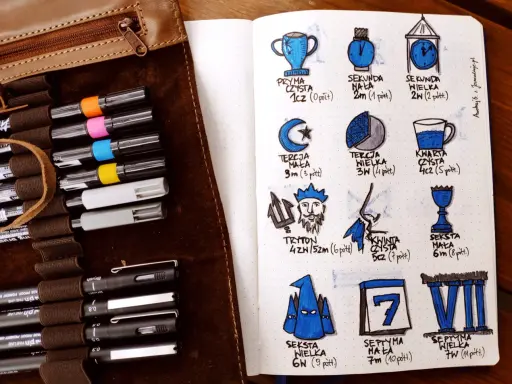 PRYMA
CZYSTA
1cz (0 półt.)
SEKUNDA
MAŁA
2m (1 półt.)
SEKUNDA
WIELKA
2w (2 półt.)
TERCJA
MAŁA
3m (3 półt)
TERCJA
WIELKA
3w (4 półt.)
KWARTA
CZYSTA
4cz (5 półt.)
TRYTON
4zw/5zm (6 półt)
KWINTA
CZYSTA
5cz (7 półt.)
SEKSTA
MAŁA
6m (8 półt.)
SEKSTA
WIELKA
6w (9 półt.)
7
SEPTYMA
MAŁA
7m (10 półt.)
VII
SEPTYMA
WIELKA
7w (11 półt.)